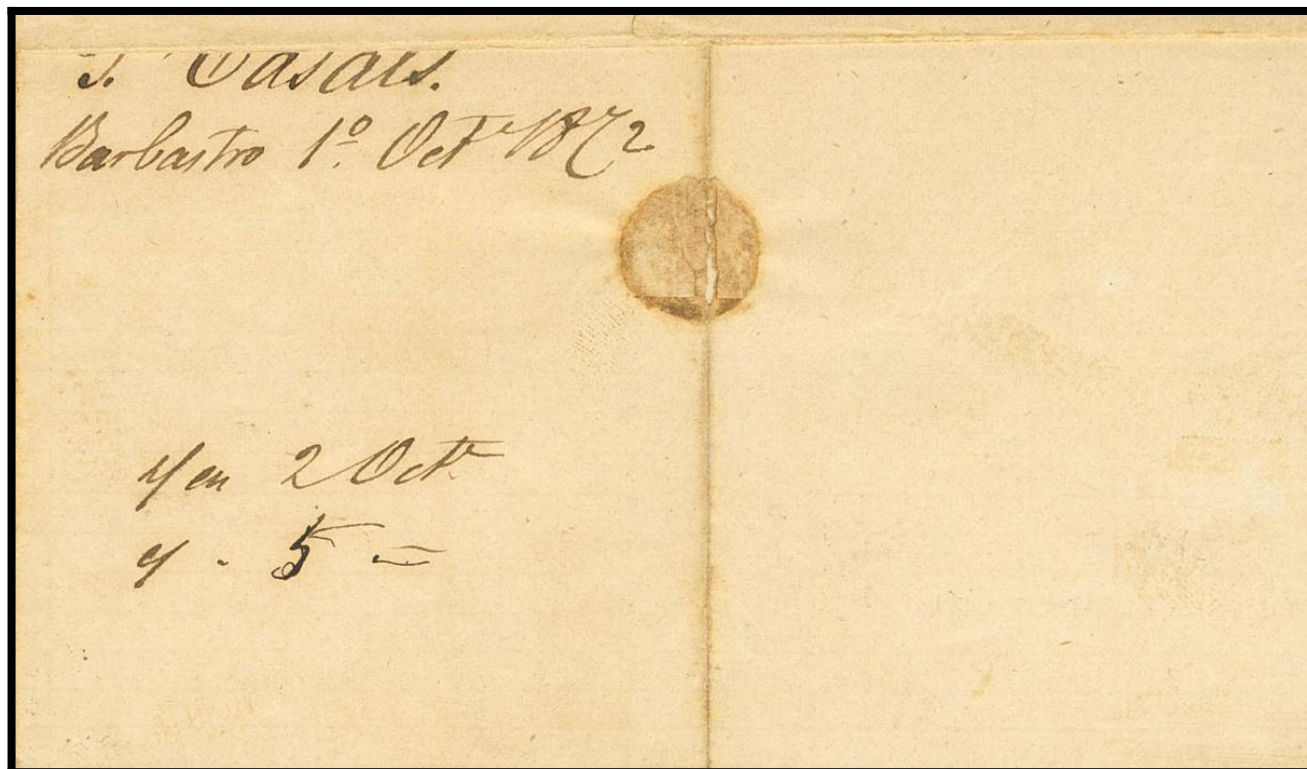 J. Casals.
Barbastro 1º Octe 1872
y en 2 Octe
y . 5 =